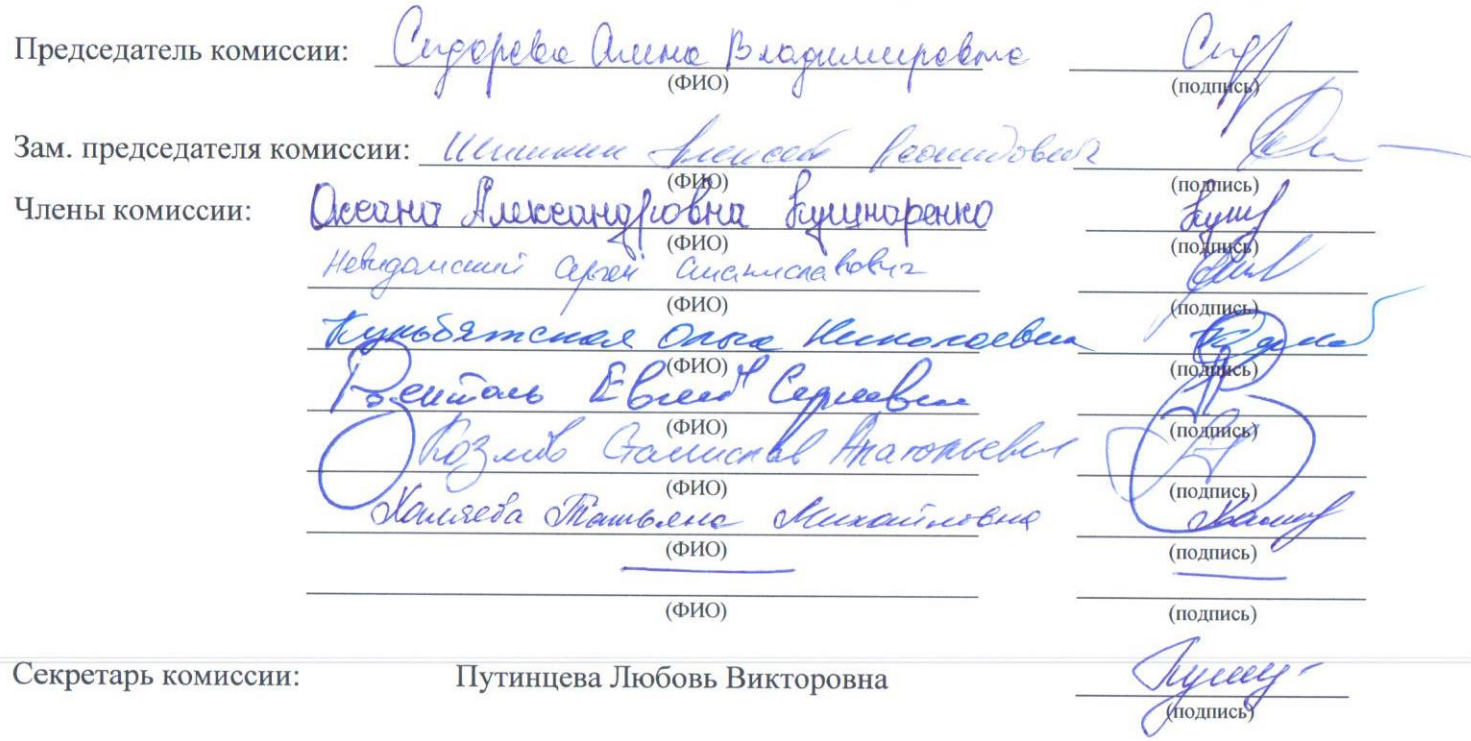 Председатель комиссии: Сидорова Алина Владимировна
(ФИО) (подпись)
Зам. председателя комиссии: Шишкин Алексей Леонидович
(ФИО) (подпись)
Члены комиссии: Оксана Александровна Кушнаренко
(ФИО) (подпись)
Невидомский Сергей Станиславович
(ФИО) (подпись)
Ольга Николаевна
(ФИО) (подпись)
Евгений Сергеевич
(ФИО) (подпись)
Козлов Станислав Анатольевич
(ФИО) (подпись)
Халяева Татьяна Михайловна
(ФИО) (подпись)
(ФИО) (подпись)
Секретарь комиссии: Путинцева Любовь Викторовна
(подпись)